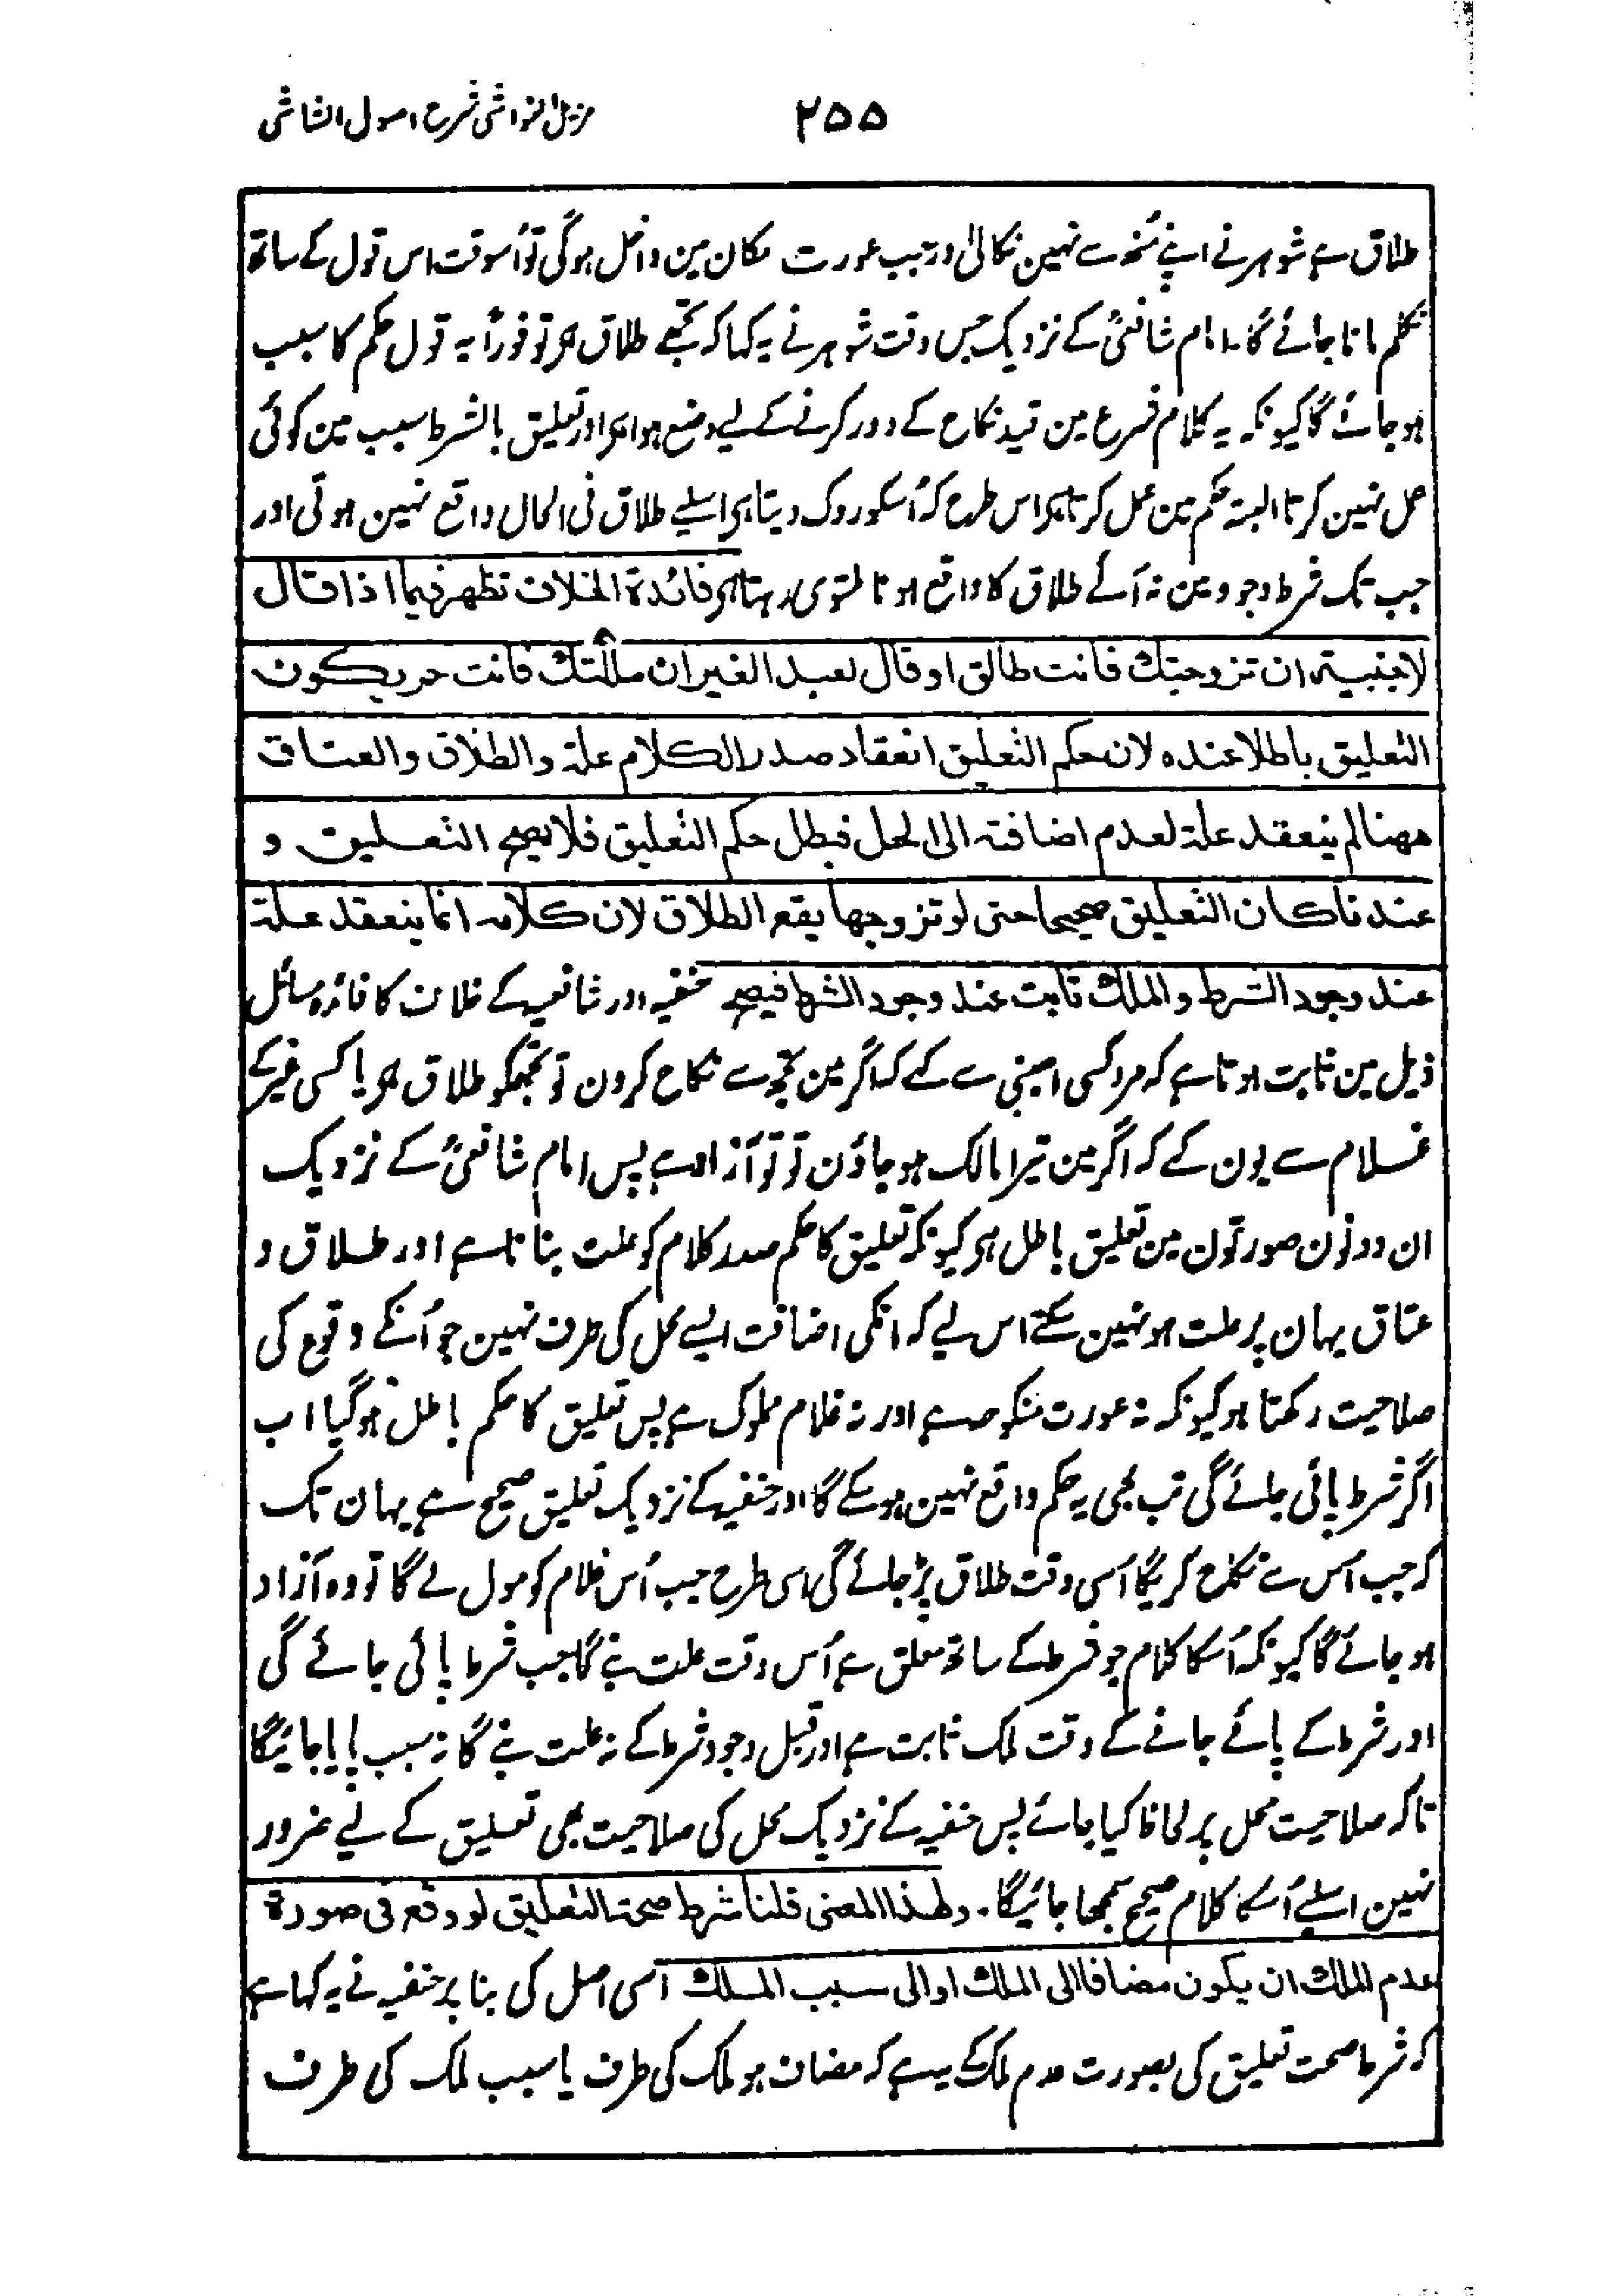 مزیل الغواشی شرح اصول الشاشی
۲۵۵
طلاق ہے شوہر نے اپنے منھ سے نہین نکالی اور جب عورت مکان مین داخل ہوگی تو اُسوقت اس قول کے ساتھ
تکلم مانا جائے گا۔ امام شافعیؒ کے نزدیک جس وقت شوہر نے یہ کہا کہ تجھے طلاق ہی تو فوراً یہ قول حکم کا سبب
ہو جائے گا کیونکہ یہ کلام شرع مین قید نکاح کے دور کرنے کے لیے وضع ہوا ہی اور تعلیق بالشرط سبب مین کوئی
عمل نہین کرتا البتہ حکم مین عمل کرتا ہی اس طرح کہ اُسکو روک دیتا ہی اسلیے طلاق فی الحال واقع نہین ہوتی اور
جب تک شرط وجود مین نہ آئے طلاق کا واقع ہونا ملتوی رہتا ہی وفائدة الخلاف تظهر فيما اذا قال
لاجنبية ان تزوجتك فانت طالق او قال لعبد الغير ان ملكتك فانت حر يكون
التعليق باطلا عنده لان حكم التعليق انعقاد صدر الكلام علة والطلاق والعتاق
ههنا لم ينعقد علة لعدم اضافته الى المحل فبطل حكم التعليق فلا يصح التعليق و
عندنا كان التعليق صحيحا حتى لو تزوجها يقع الطلاق لان كلامه انما ينعقد علة
عند وجود الشرط والملك ثابت عند وجود الشرط فيصح حنفیہ اور شافعیہ کے خلاف کا فائدہ مسائل
ذیل مین ثابت ہوتا ہے کہ مرد کسی اجنبی سے کہے کہ اگر مین تجھ سے نکاح کرون تو تجھکو طلاق ہی یا کسی غیر کے
غلام سے یون کہے کہ اگر مین تیرا مالک ہو جاؤن تو تو آزاد ہے پس امام شافعیؒ کے نزدیک
ان دونون صورتون مین تعلیق باطل ہی کیونکہ تعلیق کا حکم صدر کلام کو علت بنانا ہے اور طلاق و
عتاق یہان پر علت ہو نہین سکتے اس لیے کہ انکی اضافت ایسے محل کی طرف نہین جو اُنکے وقوع کی
صلاحیت رکھتا ہو کیونکہ نہ عورت منکوحہ ہے اور نہ غلام مملوک ہے پس تعلیق کا حکم باطل ہو گیا اب
اگر شرط پائی جائے گی تب بھی یہ حکم واقع نہین ہو سکے گا اور حنفیہ کے نزدیک تعلیق صحیح ہے یہان تک
کہ جب اُس سے نکاح کریگا اُسی وقت طلاق پڑ جائے گی اسی طرح جب اُس غلام کو مول لے گا تو وہ آزاد
ہو جائے گا کیونکہ اُسکا کلام جو شرط کے ساتھ معلق ہے اُس وقت علت بنے گا جب شرط پائی جائے گی
اور شرط کے پائے جانے کے وقت ملک ثابت ہے اور قبل وجود شرط کے نہ علت بنے گا نہ سبب پایا جائیگا
تاکہ صلاحیت محل پر لحاظ کیا جائے پس حنفیہ کے نزدیک محل کی صلاحیت بھی تعلیق کے لیے ضرور
نہین اسلیے اُسکا کلام صحیح سمجھا جائیگا۔ ولهذا المعنى قلنا شرط صحة التعليق لو وقع فى صورة
عدم الملك ان يكون مضافا الى الملك او الى سبب الملك اسی اصل کی بنا پر حنفیہ نے یہ کہا ہے
کہ شرط صحت تعلیق کی بصورت عدم ملک کے یہ ہے کہ مضاف ہو ملک کی طرف یا سبب ملک کی طرف